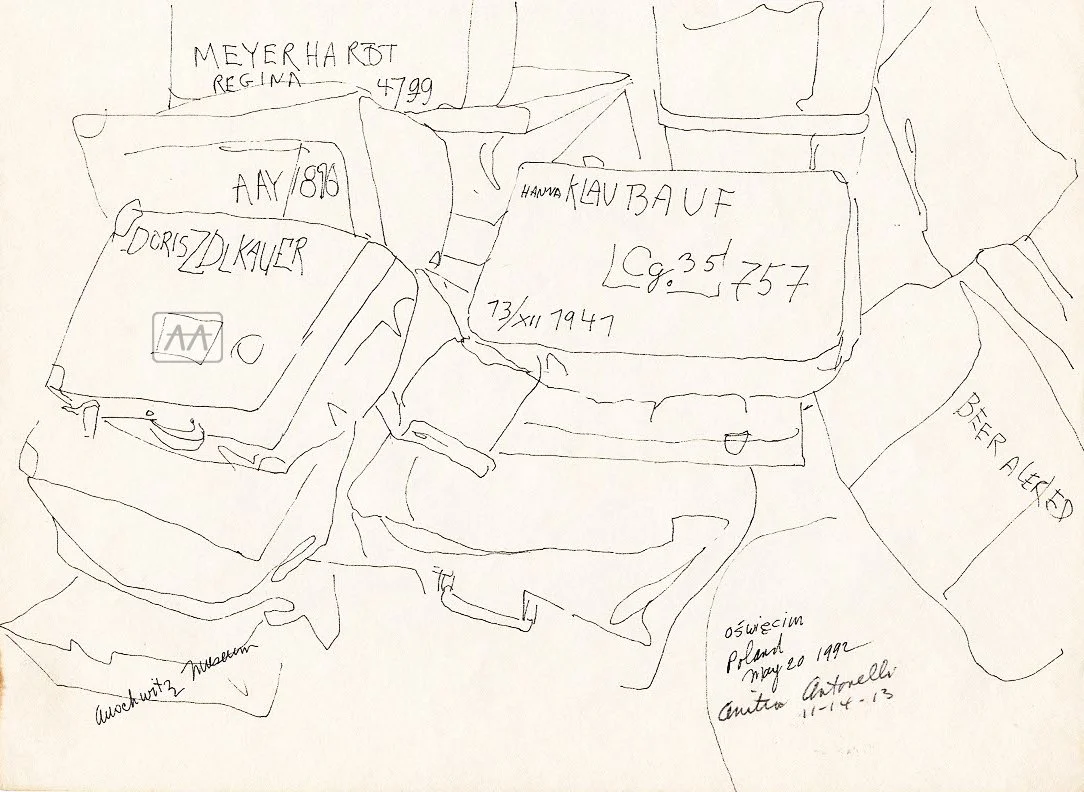 MEYERHARDT
REGINA 4799
AAY/890
DORIS ZDLKAUER
AA
HANNA KLAUBAUF
Cg.35 757
13/XII 1941
BEER ALERED
Auschwitz Museum
Oświęcim
Poland
May 20 1992
Anita Antonelli
11-14-13